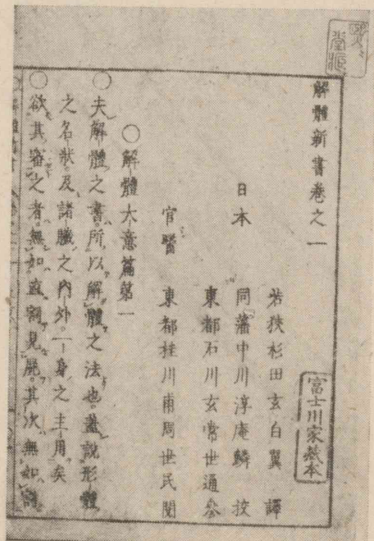 解體新書卷之一
富士川家藏本
若狹杉田玄白翼 譯
日本 同藩中川淳庵鱗 挍
東都石川玄常世通 參
官醫 東都桂川甫周世民 閱
○解體大意篇第一
○夫解體之書所以解體之法也蓋說形體
之名狀及諸臟之內外一身之主用矣
○欲其審之者無如直割見屍其次無如割